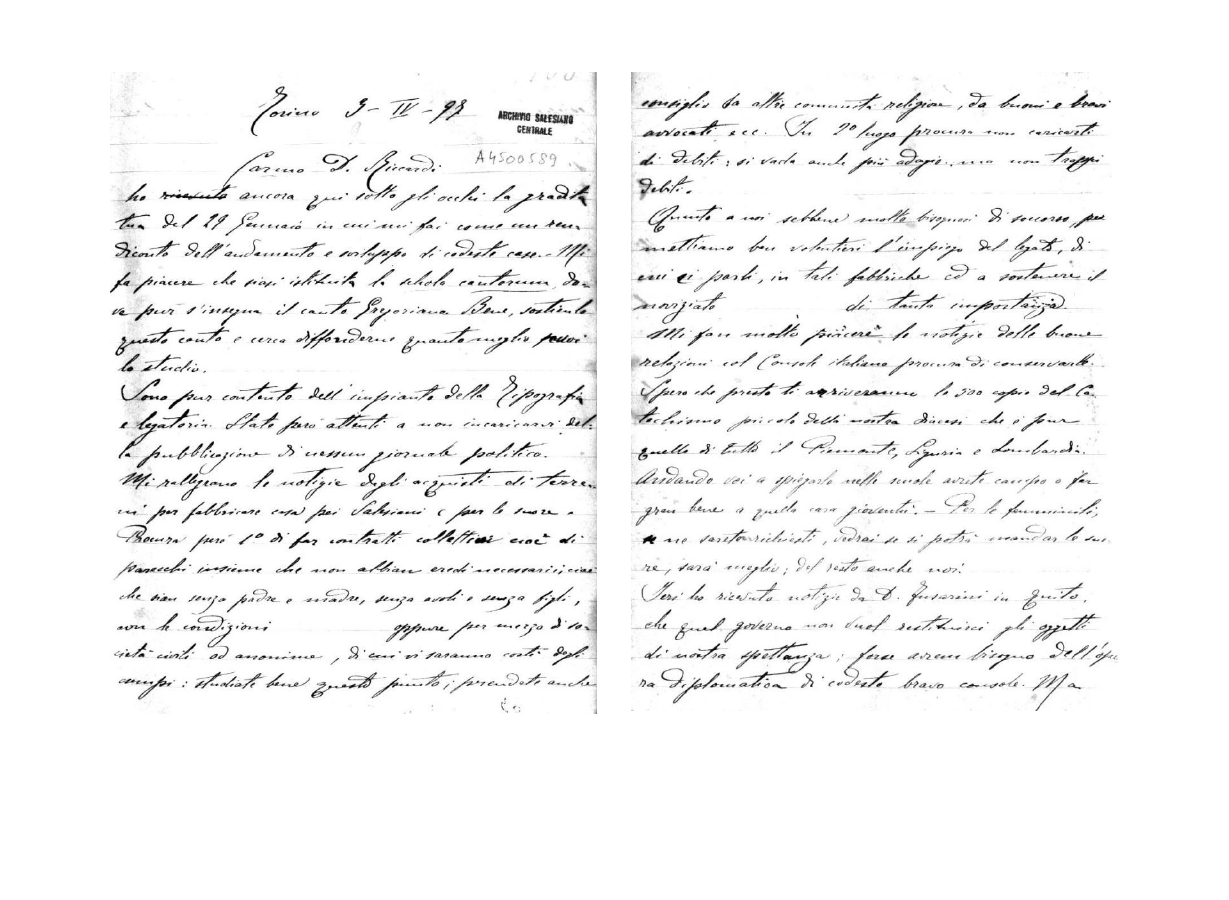 Torino 3 - IV - 97
ARCHIVIO SALESIANO
CENTRALE
A4500589
Carmo D. Riccardi
ho ricevuto ancora qui sotto gli occhi la gradita
tua del 29 Gennaio in cui mi fai come un ren-
diconto dell'andamento e sviluppo di codeste case. Mi
fa piacere che siasi istituita la schola cantorum, do-
ve pur s'insegna il canto Gregoriano. Bene, sostienlo
questo canto e cerca diffonderne quanto meglio puoi
lo studio.
Sono pur contento dell'impianto della Tipografia
e legatoria. State però attenti a non incaricarvi del-
la pubblicazione di nessun giornale politico.
Mi rallegrano le notizie degli acquisti di terre-
ni per fabbricare casa pei Salesiani e per le suore.
Procura però 1° di far contratti collettivi cioè di
parecchi insieme che non abbian eredi necessarii, cioè
che sian senza padre e madre, senza avoli e senza figli,
con le condizioni oppure per mezzo di so-
cietà civili od anonime, di cui vi saranno costì degli
esempi: studiate bene questo punto; prendete anche
consiglio da altre comunità religiose, da buoni e bravi
avvocati ecc. In 2° luogo procura non caricarti
di debiti: si vada anche più adagio, ma non troppi
debiti.
Quanto a noi sebbene molto bisognosi di soccorso, per
mettiamo ben volentieri l'impiego del legato, di
cui ci parli, in tali fabbriche ed a sostenere il
noviziato di tanta importanza.
Mi fan molto piacere le notizie delle buone
relazioni col Console italiano procura di conservarle.
Spero che presto ti arriveranno le 500 copie del Ca-
techismo piccolo della nostra diocesi che è pur
quello di tutto il Piemonte, Liguria e Lombardia.
Andando voi a spiegarlo nelle scuole avrete campo a far
gran bene a quella cara gioventù. - Per le femminili,
se ne sarete richiesti, vedrai se si potrà mandar le suo-
re, sarà meglio; del resto anche voi.
Ieri ho ricevuto notizie da D. Fusarini in Quito,
che quel governo non vuol restituirci gli oggetti
di nostra spettanza; forse avrem bisogno dell'ope-
ra diplomatica di codesto bravo console. Ma